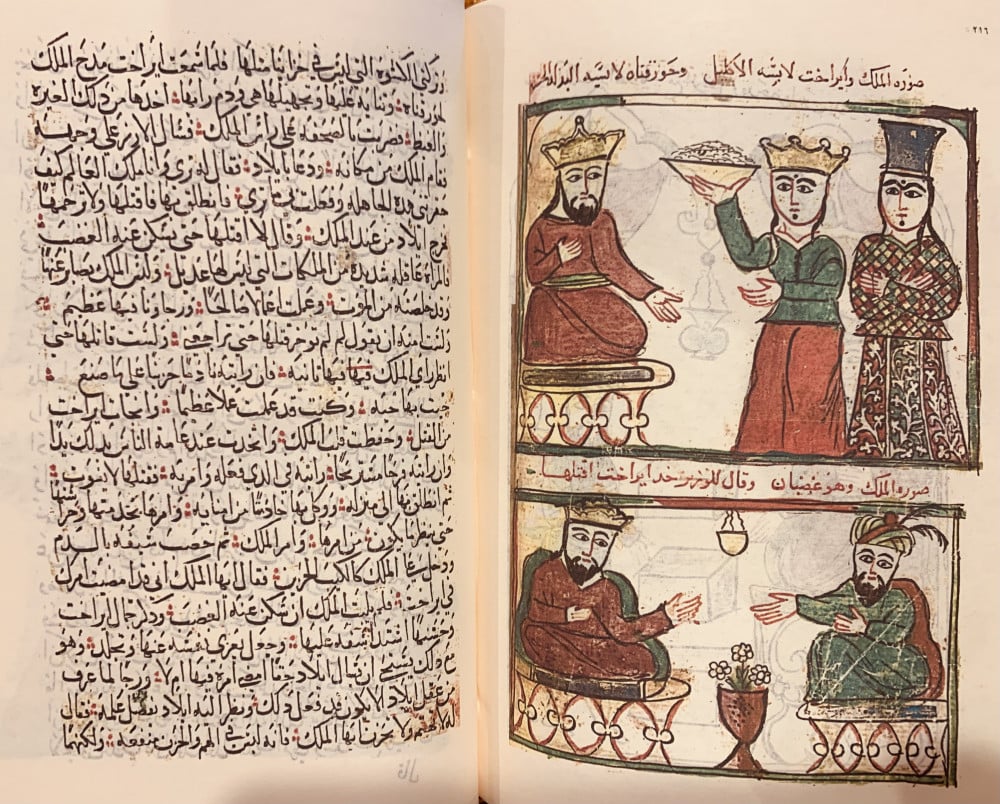 ٢١٦
صورة الملك وايراخت لابسه الاكليل وحورقناه لابسه البدله
صورة الملك وهو غضبان وقال للوزير خد ايراخت اقتلها
الكسوة التي ليس في خزاينا مثلها فلما سمعت ايراخت مدح الملك
لحورقناه وثنايه عليها وتجهيلها هي وذم رايها اخذها من ذلك الغيره
والغيظ فضربت بالصحفه على راس الملك فسال الارز على وجهه
فقام الملك من مكانه ودعا بايلاد فقال له ترى وانا ملك العالم كيف
حقرتني هذه الجاهله وفعلت بي ما ترى فانطلق بها فاقتلها ولا ترحمها
فخرج ايلاد من عند الملك وقال لا اقتلها حتى يسكن عنه الغضب
فالمراة عاقله شديده من الملكات التي ليس لها عديل وليس الملك بصابر عنها
وقد خلصته من الموت وعملت اعمالا صالحا ورجاونا فيها عظيم
ولست امنه ان يقول لم لم توخر قتلها حتى تراجعني ولست قاتلها حتى
انظر راي الملك فيها ثانيه فان رايته نادما حزينا على ما صنع
جيت بها حيه وكنت قد عملت عملا عظيما وانجيت ايراخت
من القتل وحفظت قلب الملك واتخدت عند عامة الناس بدلك يدا
وان رايته فرحا مستريحا رايته في الذي فعله وامر به فقتلها لا يفوت
ثم انطلق بها الى منزله ووكل بها خادما من امنايه وامره بخدمتها وحراستها
حتى ينظر ما يكون من امرها وامر الملك ثم خضب سيفه بالدم
ودخل على الملك كالكيب الحزين فقال ايها الملك اني قد امضيت امرك
في ايراخت فلم يلبث الملك ان سكن عنه الغضب وذكر جمال ايراخت
وحسنها اشتد اسفه عليها وجعل يعزي نفسه عنها ويتجلد وهو
مع ذلك يستحيي ان يسال ايلاد حقا امضى امره فيها ام لا ورجا لما عرف
من عقل ايلاد الا يكون قد فعل ذلك ونظر اليه ايلاد بفضل علمه فقال
له لا تهتم ولا تحزن ايها الملك فانه ليس في الهم والحزن منفعه ولكنهما
قال